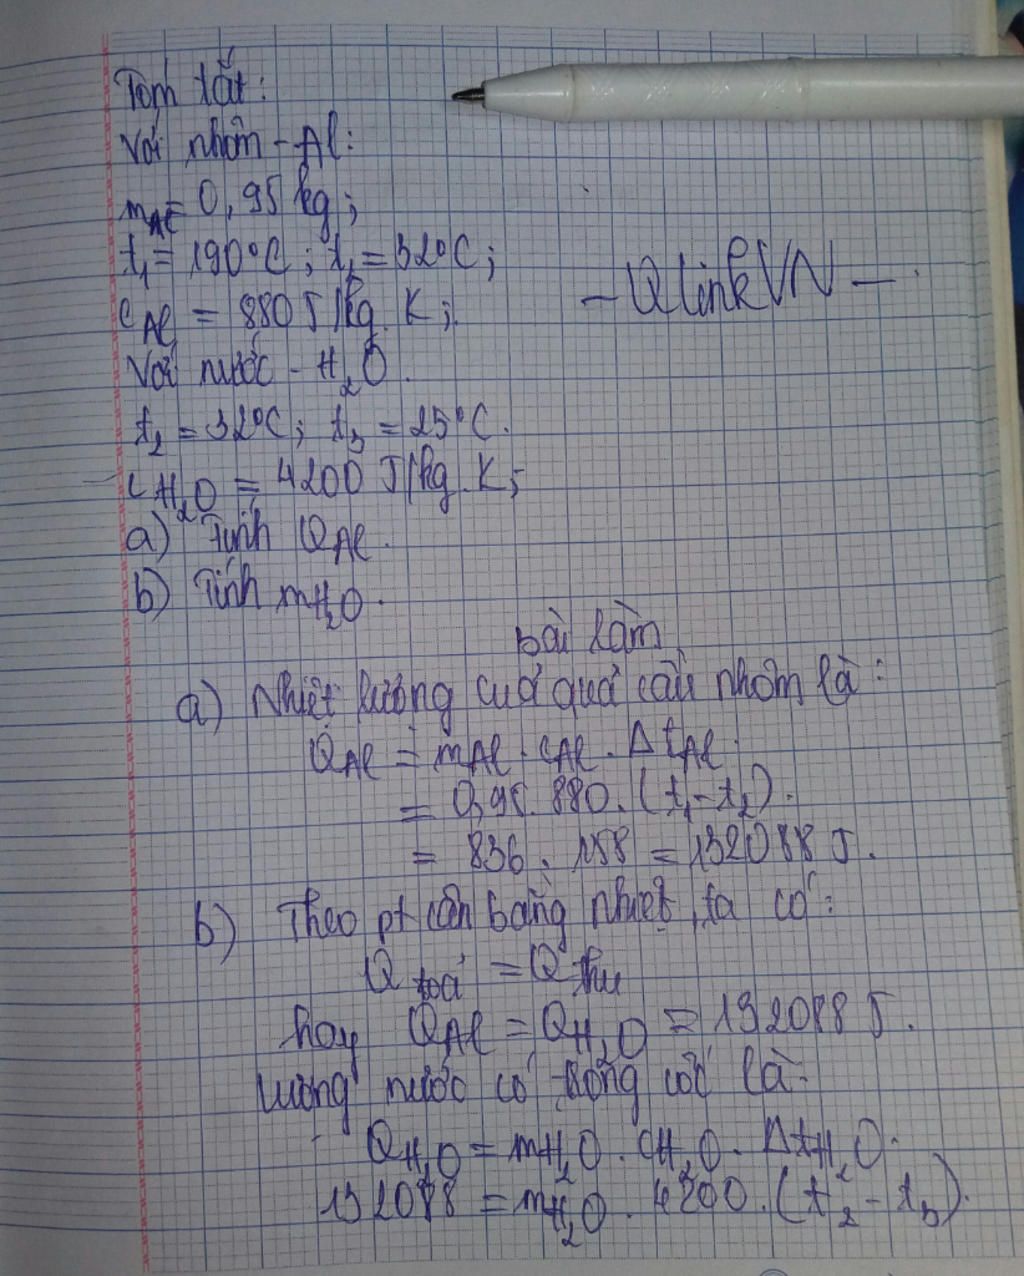 Tóm tắt:
Với nhôm - Al:
mAl = 0,95 kg;
t1 = 190°C; t2 = 32°C;
- QlinkVN -
cAl = 880 J/kg.K;
Với nước - H2O.
t2 = 32°C; t3 = 25°C.
cH2O = 4200 J/kg.K;
a) Tính QAl.
b) Tính mH2O.
bài làm
a) Nhiệt lượng cuả quả cầu nhôm là:
QAl = mAl . cAl . ΔtAl.
= 0,95. 880. (t1 - t2).
= 836 . 158 = 132088 J.
b) Theo pt cân bằng nhiệt, ta có:
Q toả = Q thu
hay QAl = QH2O = 132088 J.
Lượng nước có trong cốc là:
QH2O = mH2O . cH2O . ΔtH2O.
132088 = mH2O . 4200 . (t2 - t3).